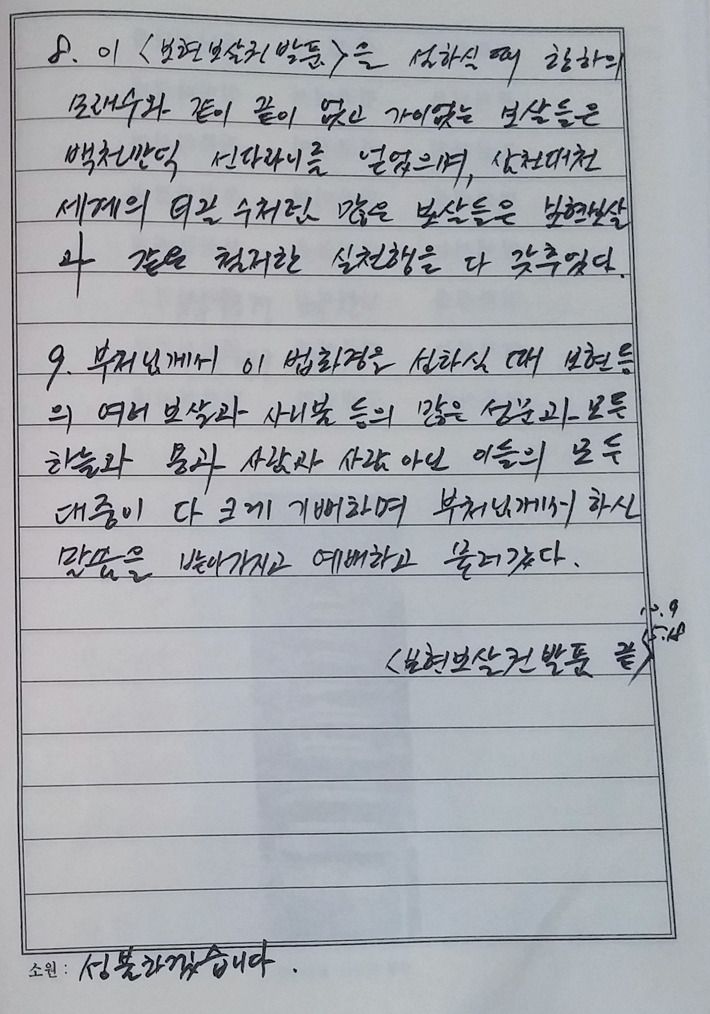 8. 이 〈보현보살권발품〉을 설하실 때 항하의
모래수와 같이 끝이 없고 가이없는 보살들은
백천만억 선다라니를 얻었으며, 삼천대천
세계의 티끌 수처럼 많은 보살들은 보현보살
과 같은 철저한 실천행을 다 갖추었다.
9. 부처님께서 이 법화경을 설하실 때 보현등
의 여러 보살과 사리불 등의 많은 성문과 모든
하늘과 용과 사람과 사람 아닌 이들의 모두
대중이 다 크게 기뻐하며 부처님께서 하신
말씀을 받아가지고 예배하고 물러갔다.
〈보현보살권발품 끝〉
소원 : 성불하겠습니다.